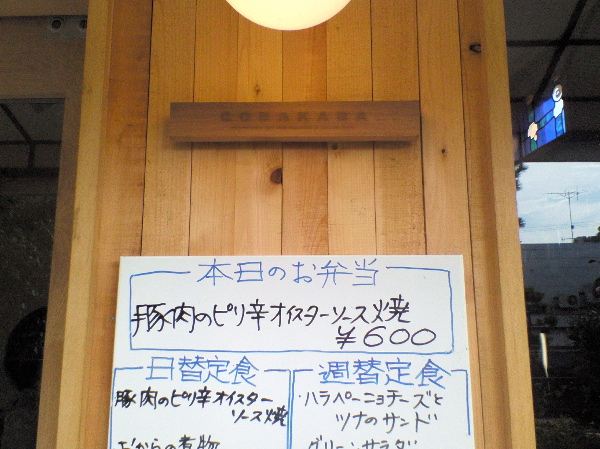 COBAKABA
本日のお弁当
豚肉のピリ辛オイスターソース焼
¥600
日替定食
豚肉のピリ辛オイスター
ソース焼
おからの煮物
週替定食
・ハラペーニョチーズと
ツナのサンド
グリーンサラダ